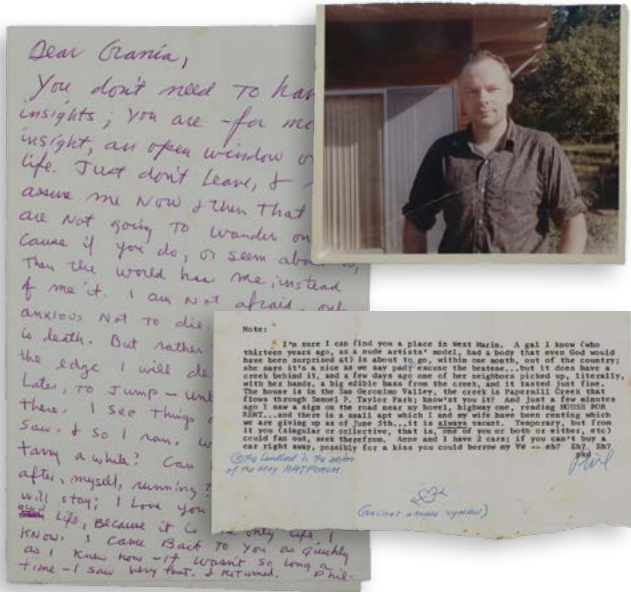 Dear Grania,
You don't need to
insights; you are - for me
insight, an open window
life. Just don't leave, &
assure me now & then that
are not going to wander
cause if you do, or seem
Then the world has me, instead
of me it. I am not afraid, only
anxious not to die.
is death. But rather
the edge I will
Later, to jump -
there. I see things
saw. & so I ran.
tarry a while? Can
after, myself, running?
will stay; I love you
life, because it is only life I
know. I came back to you as quickly
as I knew how - it wasn't so long a
time - I saw very that. & returned. Phil.
Note:
I'm sure I can find you a place in West Marin. A gal I know (who
thirteen years ago, as a nude artists' model, had a body that even God would
have been surprised at) is about to go, within one month, out of the country;
she says it's a nice as we say pad excuse the beatese...but it does have a
creek behind it, and a few days ago one of her neighbors picked up, literally,
with her hands, a big edible bass from the creek, and it tasted just fine.
The house is in the San Geronimo Valley, the creek is Papermill Creek that
flows through Samuel P. Taylor Park; know'at you it? And just a few minutes
ago I saw a sign on the road near my hovel, highway one, reading HOUSE FOR
RENT...and there is a small apt which I and my wife have been renting which
we are giving up as of June 5th...it is always vacant. Temporary, but from
it you (singular or collective, that is, one of you or both or either, etc)
could fan out, seek therefrom. Anne and I have 2 cars; if you can't buy a
car right away, possibly for a kiss you could borrow my VW -- eh? Eh? Eh?
phd
Phil
The landlord is the editor
of the May ARTFORUM
(ancient